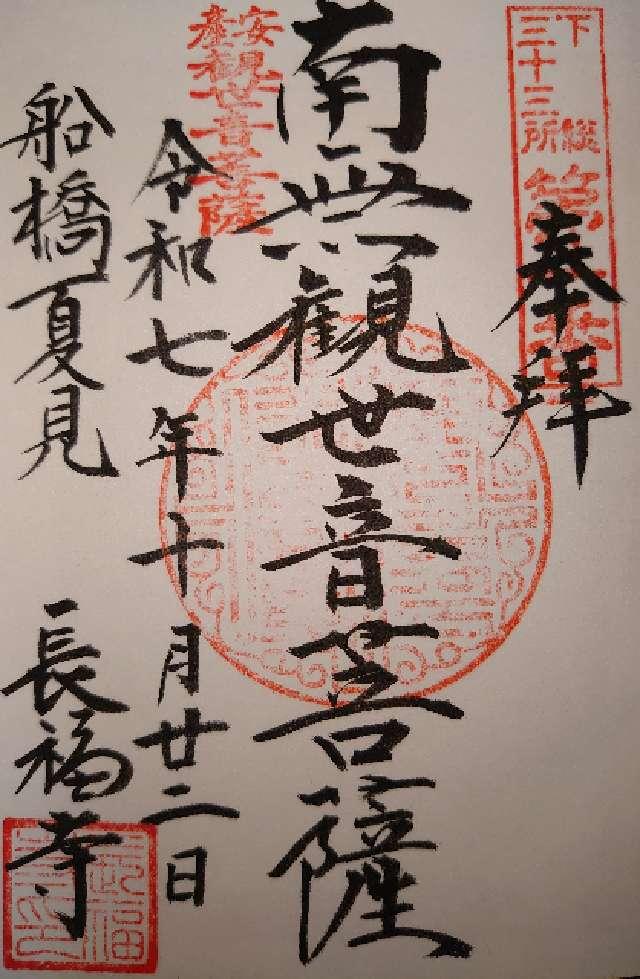 下総
三十三所
奉拝
南無觀世音菩薩
安産
観世音菩薩
令和七年十月廿二日
船橋夏見
長福寺